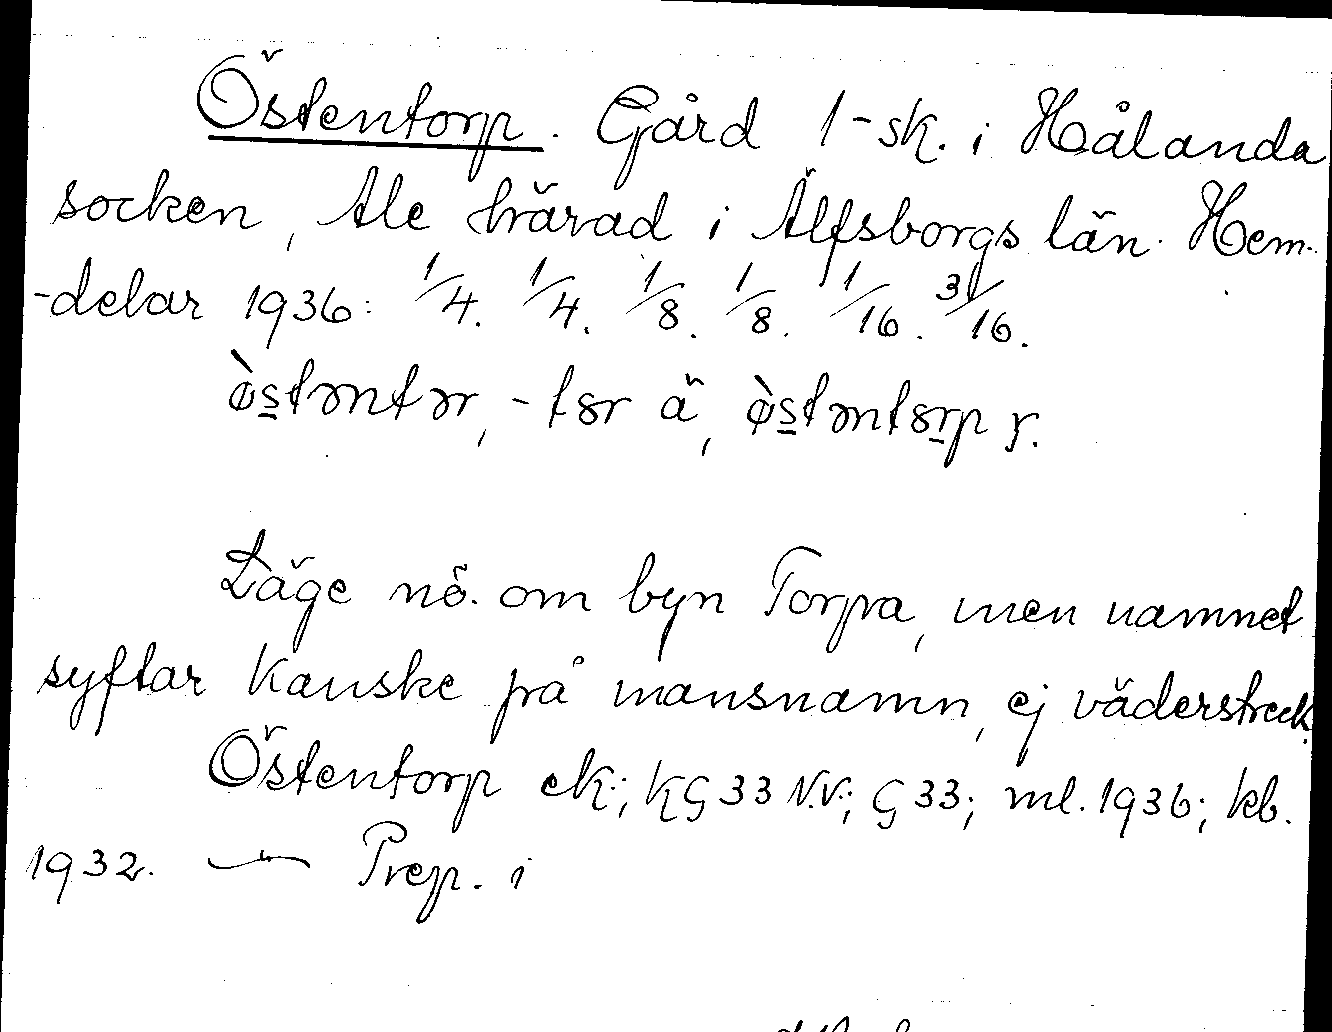 Östentorp. Gård 1-sk. i Hålanda
socken, Ale härad i Älfsborgs län. Hem-
-delar 1936: 1/4. 1/4. 1/8. 1/8. 1/16. 3/16.
ø̀stəntər, -tɞr ä, ø̀stəntɞrp y.
Läge nö. om byn Torpa, men namnet
syftar kanske på mansnamn, ej väderstreck.
Östentorp ek.; KG 33 N.V.; G 33; ml. 1936; kb.
1932. — Prep. i